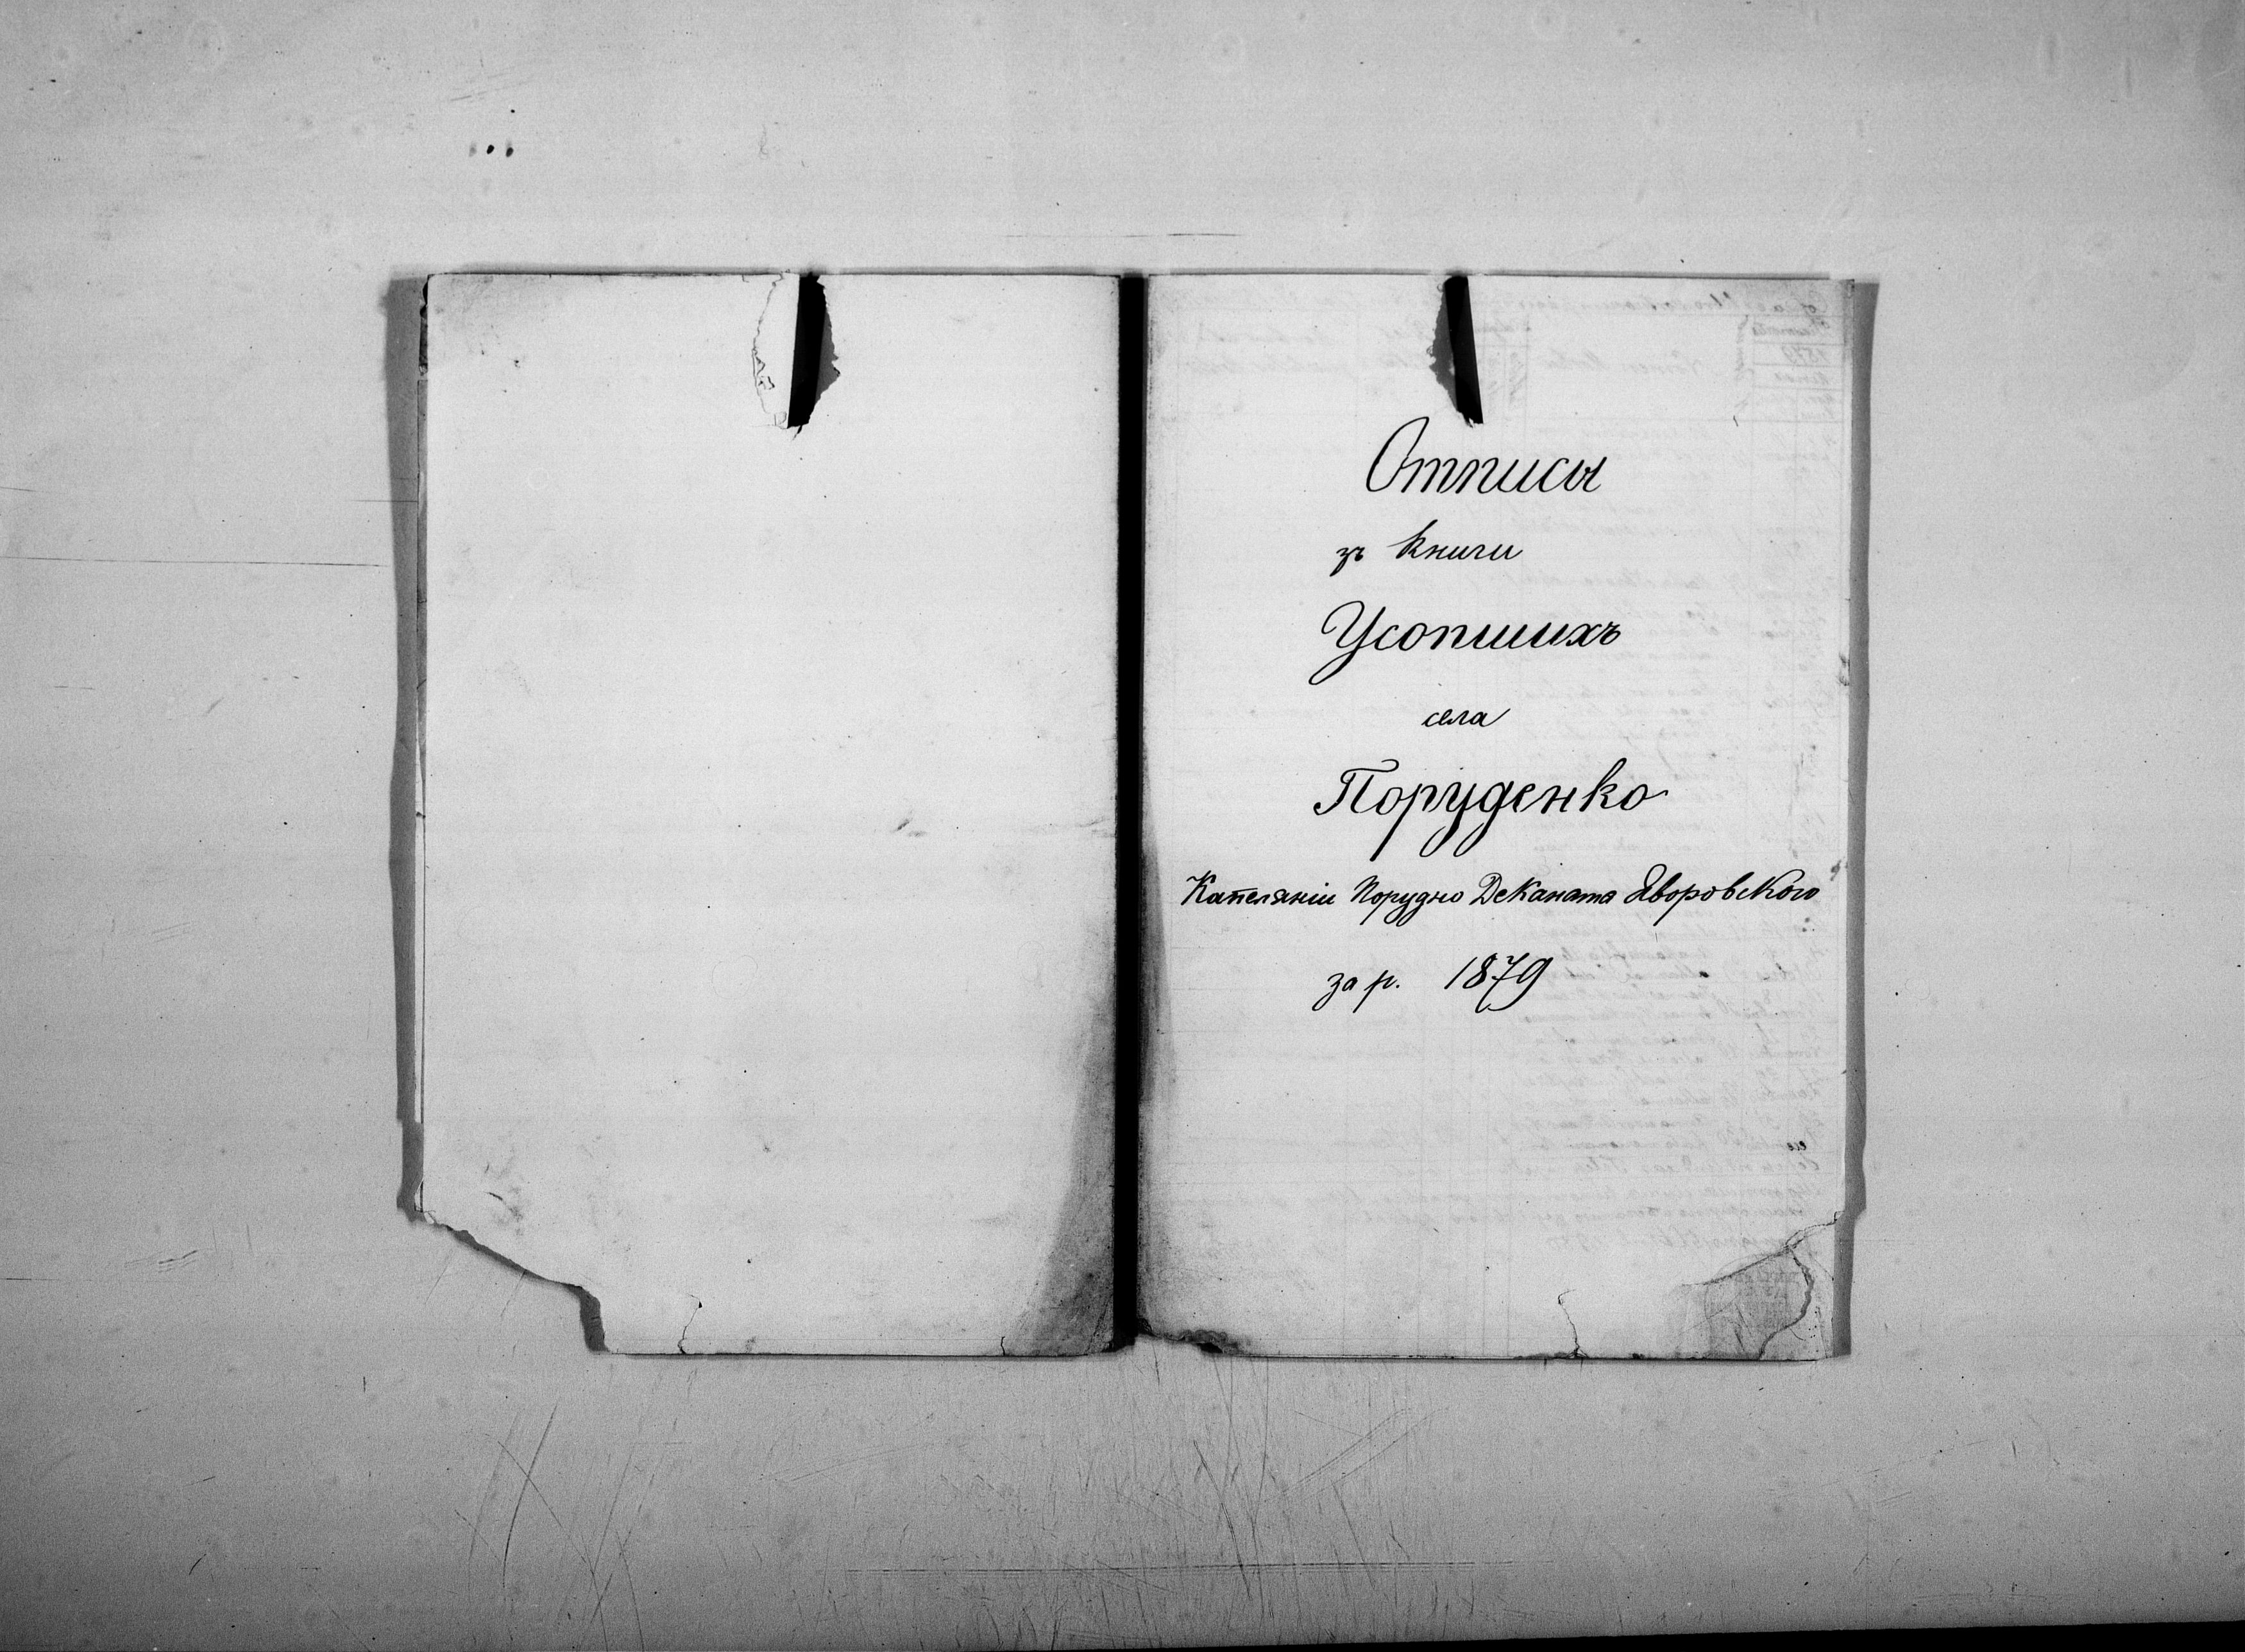 Отписы
зъ книги
Усопшихъ
села
Поруденко
Капеляніи Порудно Деканата Яворовского
за р. 1879